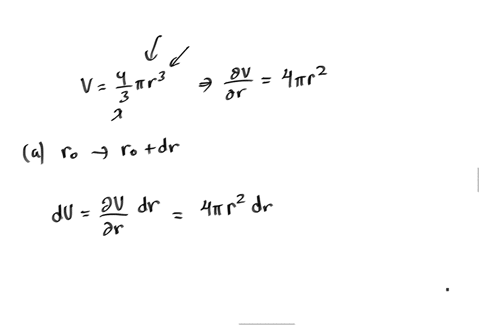 V = 4/3 πr³ ⇒ ∂V/∂r = 4πr²
(a) r₀ → r₀ + dr
dV = ∂V/∂r dr = 4πr² dr